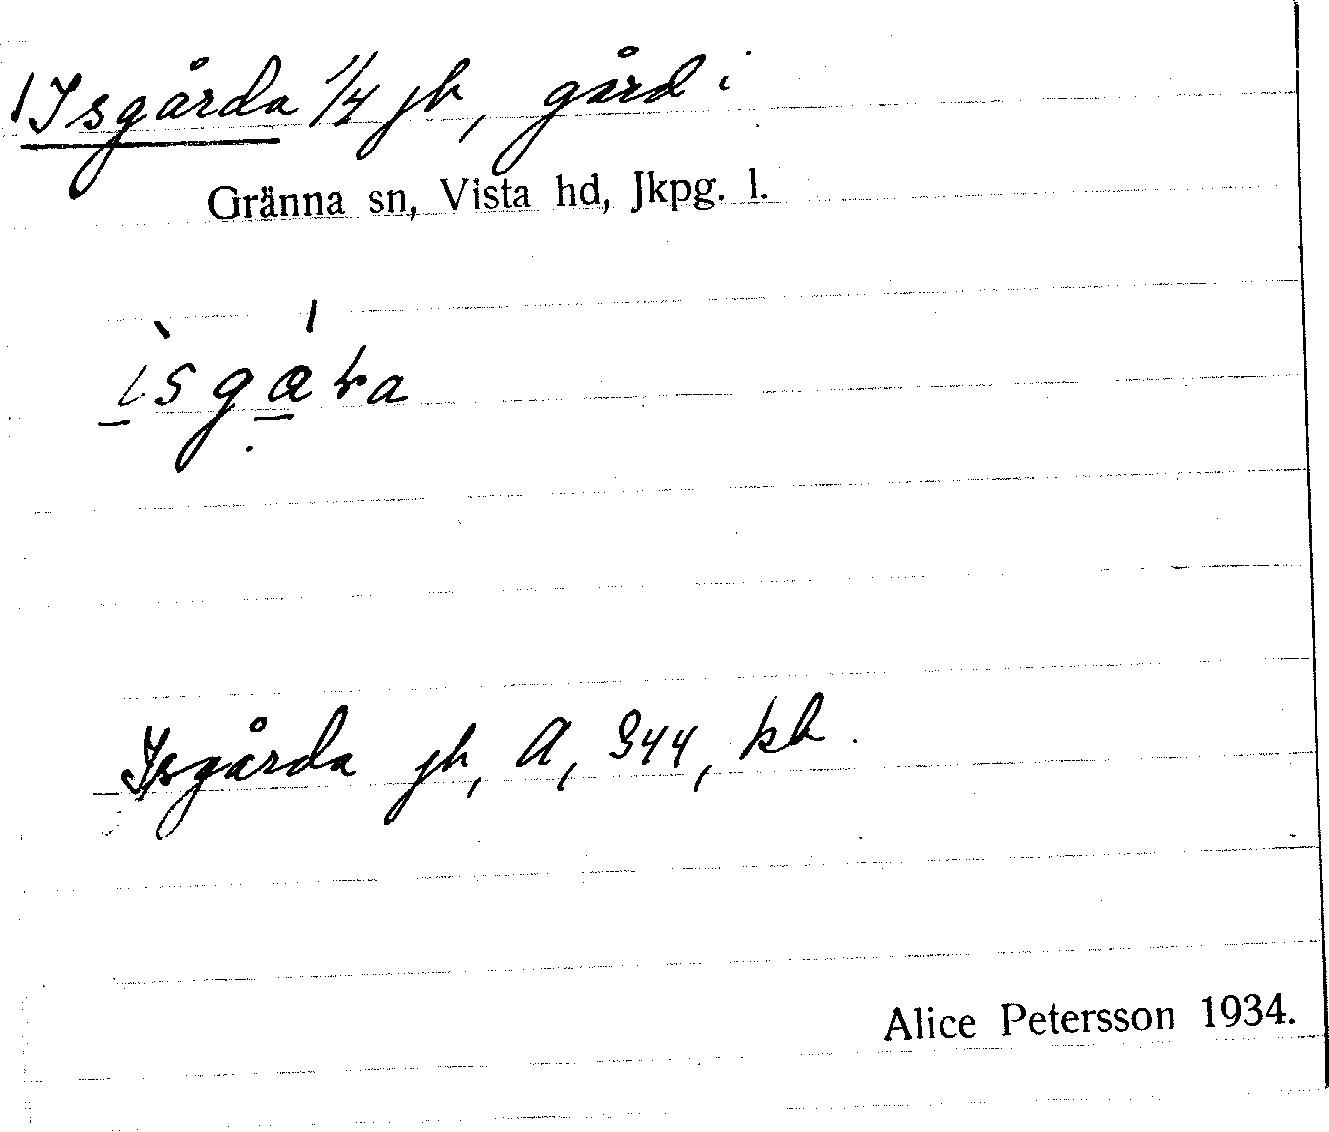 1 Isgårda 1/4 jb, gård i
Gränna sn, Vista hd, Jkpg. l.
ìsgára
Isgårda jb, A, 944, kb.
Alice Petersson 1934.